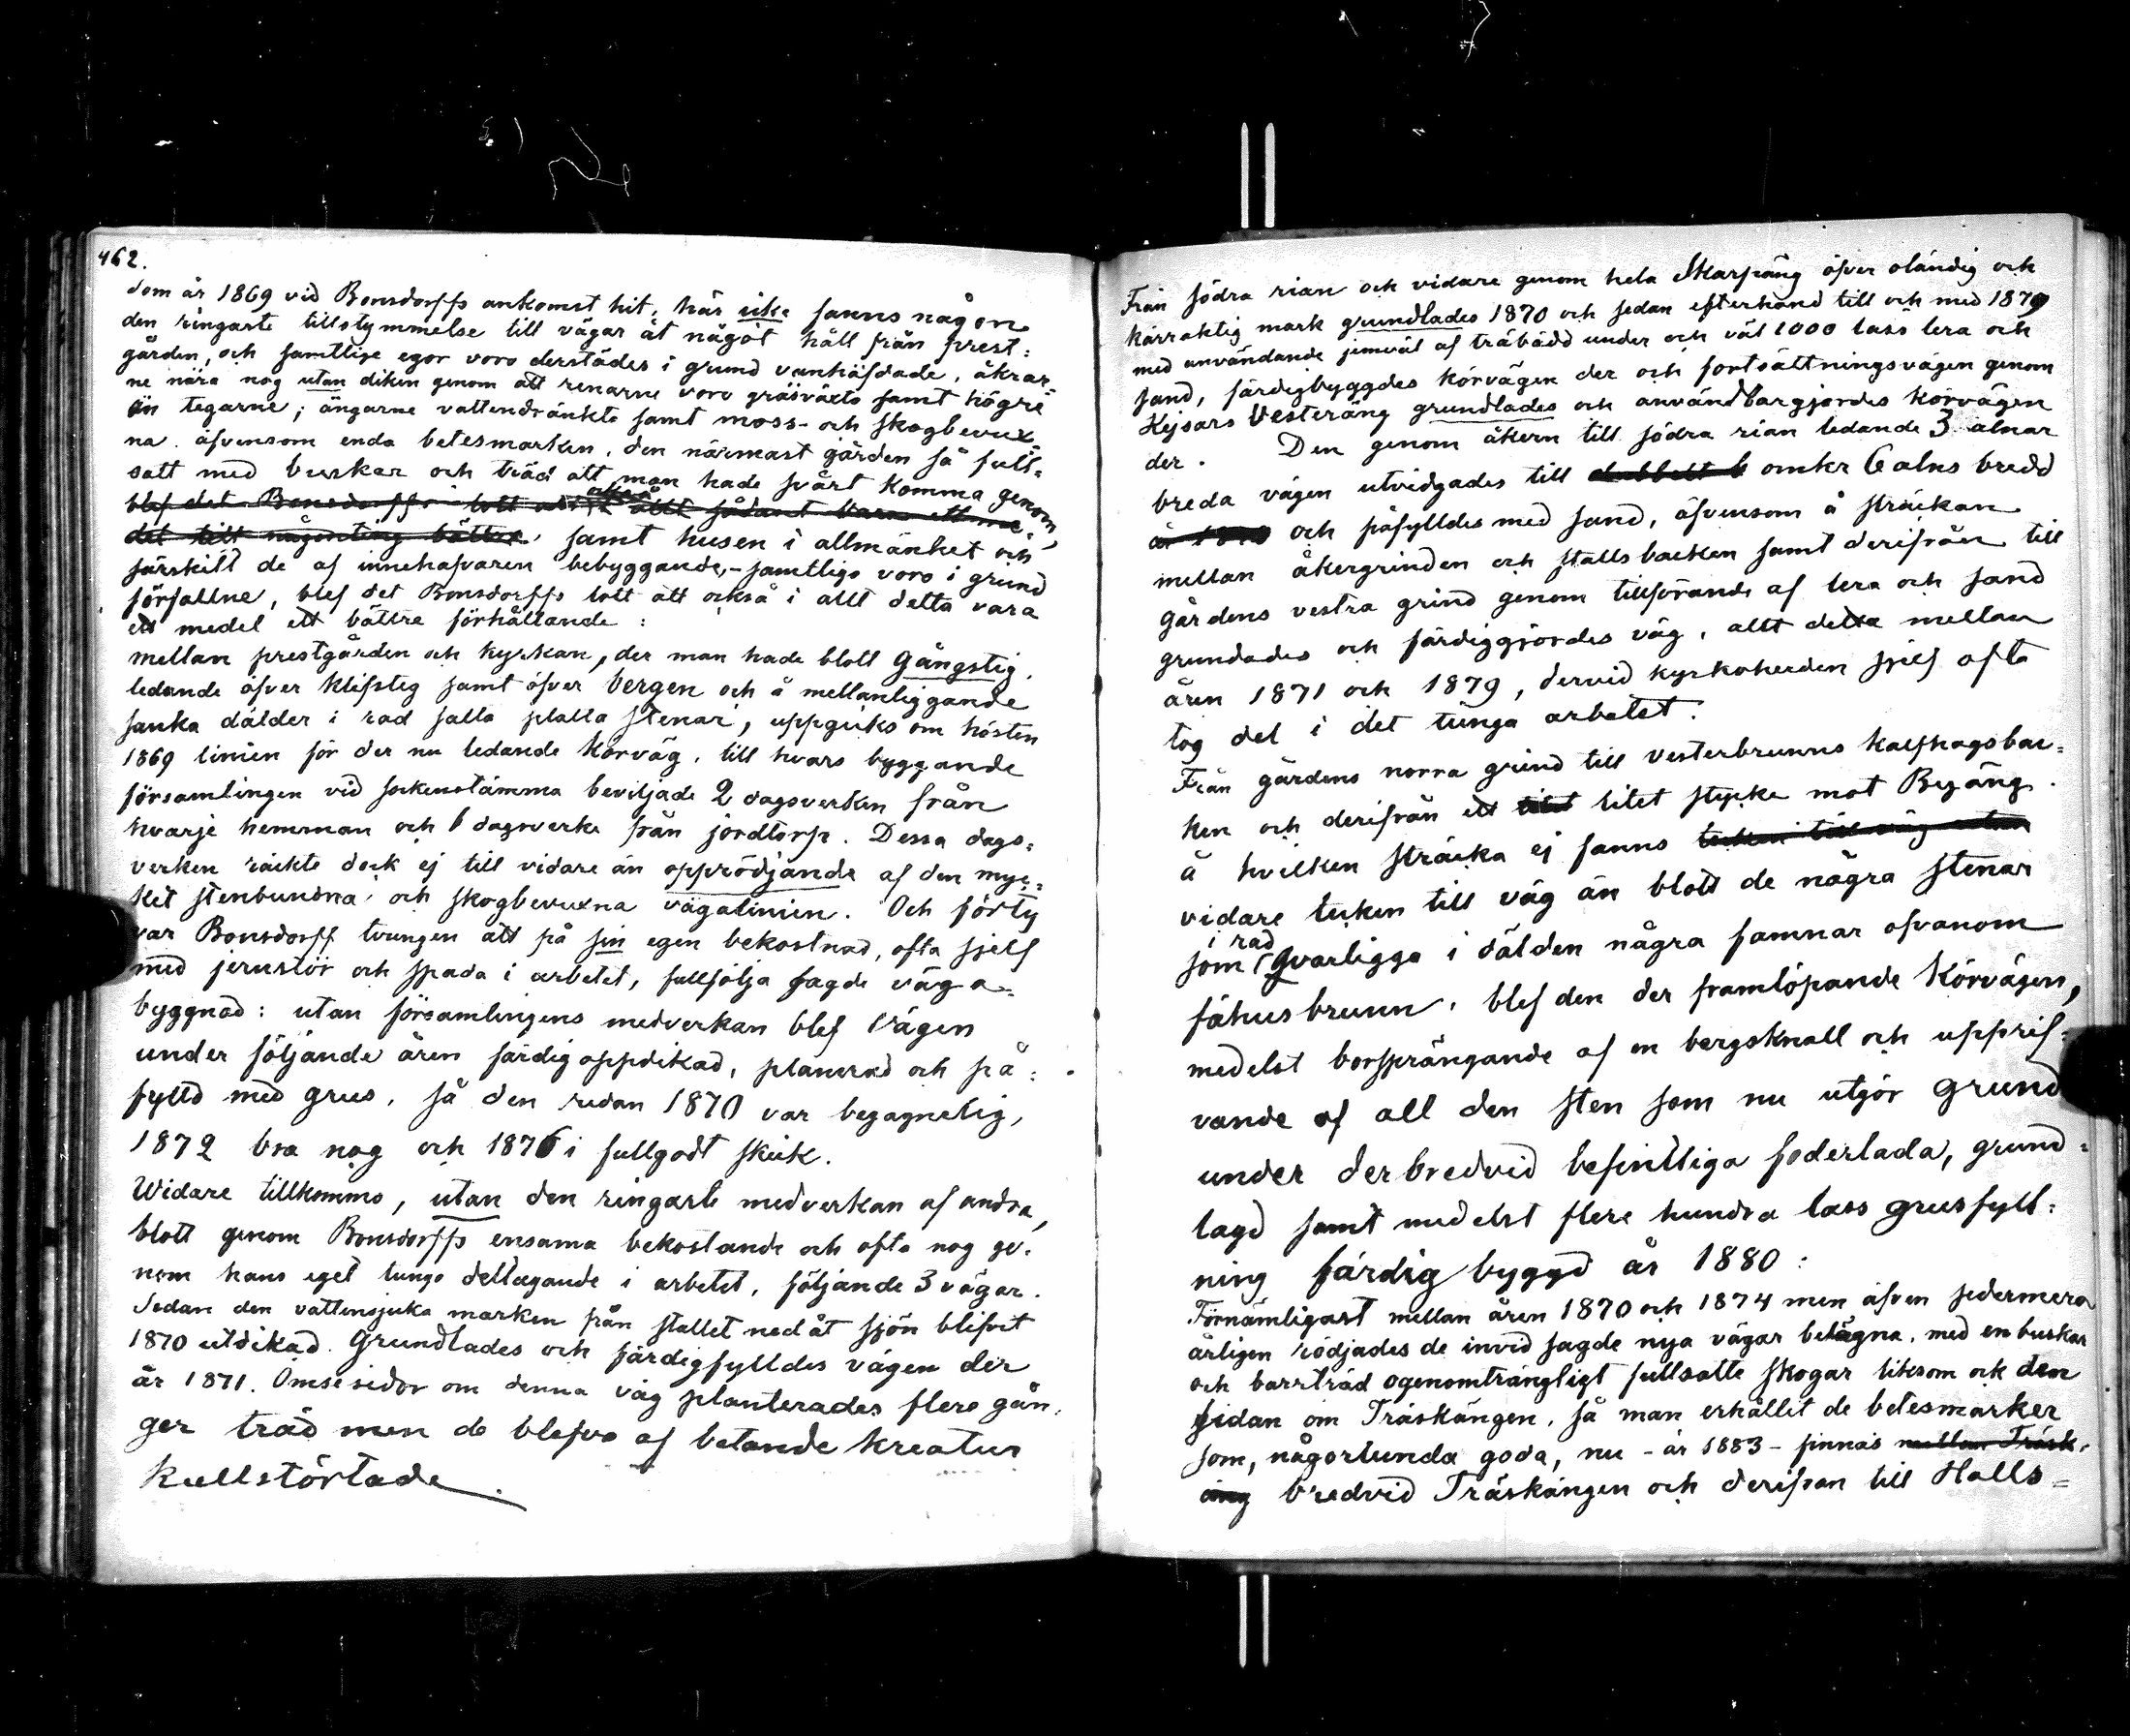 462.
Som år 1869 vid Bonsdorffs ankomst hit, här icke fanns någon
den ringaste tillstymmelse till vägar åt något håll från prest=
gården, och samtlige egor voro derstädes i grund vanhäfdade, åkrar=
ne nära nog utan diken genom att renarne voro gräsväxta samt högre
än tegarne; ängarne vattendränkta samt moss- och skogbevux=
na. äfvensom enda betesmarken, den närmast gården så full=
satt med buskar och träd att man hade svårt komma genom,
blef det Bonsdorffs lott att allt sådant vara
det till någonting bättre, samt husen i allmänhet och
särskilt de af innehafvaren bebyggande, - samtliga voro i grund
förfallne, blef det Bonsdorffs lott att också i allt detta vara
ett medel ett bättre förhållande:
Mellan prestgården och kyrkan, der man hade blott gångstig,
ledande öfver klifsteg samt öfver bergen och å mellanliggande
sanka dälder i rad satta platta stenar, uppgicks om hösten
1869 linien för der nu ledande körväg, till hvars byggande
församlingen vid sockenstämma beviljade 2 dagsverken från
hvarje hemman och 1 dagsverke från jordtorp. Dessa dags=
verken räckte dock ej till vidare än opprödjande af den myc=
ket stenbundna och skogbevuxna vägalinien. Och förty
var Bonsdorff tvungen att på sin egen bekostnad, ofta sjelf
med jernstör och spada i arbetet, fullfölja sagde väga=
byggnad: utan församlingens medverkan blef vägen
under följande åren färdig oppdikad, planerad och på=
fylld med grus, så den redan 1870 var begagnelig,
1872 bra nog och 1876 i fullgodt skick.
Widare tillkommo, utan den ringaste medverkan af andra,
blott genom Bonsdorffs ensamma bekostande och ofta nog ge=
nom hans eget tunga deltagande i arbetet, följande 3 vägar.
Sedan den vattensjuka marken från stallet nedåt sjön blifvit
1870 utdikad. Grundlades och färdigfylldes vägen der
år 1871. Ömse sidor om denna väg planterades flere gån=
ger träd men de blefvo af betande kreatur
kullstörtade.
Från södra rian och vidare genom hela Skarpäng öfver oländig och
kärraktig mark grundlades 1870 och sedan efterhand till och med 1879
med användande jemväl af träbädd under och väl 1000 lass lera och
sand, färdigbyggdes körvägen der och fortsättningsvägen genom
Kejsars Vesteräng grundlades och användbargjordes körvägen
der. Den genom åkern till södra rian ledande 3 alnar
breda vägen utvidgades till dubbelt b omkr 6 alns bredd
år 18 och påfylldes med sand, äfvensom å sträckan
mellan åkergrinden och stallsbacken samt derifrån till
gårdens vestra grind genom tillförande af lera och sand
grundades och färdiggjordes väg, allt detta mellan
åren 1871 och 1879, dervid kyrkoherden sjelf ofta
tog del i det tunga arbetet.
Från gårdens norra grind till vesterbrunns kalfhagsbac=
ken och derifrån ett litet litet stycke mot Byäng,
å hvilken sträcka ej fanns tecken till väg utan
vidare tecken till väg än blott de några stenar
som i rad qvarligga i dälden några famnar ofvanom
fähusbrunn, blef den der framlöpande körvägen,
medelst borsprängande af en bergsknall och upprif=
vande af all den sten som nu utgör grund
under derbredvid befintliga foderlada, grund=
lagd samt medelst flere hundra lass grusfyll=
ning färdig byggd år 1880:
Förnämligast mellan åren 1870 och 1874 men äfven sedermera
årligen rödjades de invid sagde nya vägar belägna, med enbuskar
och barrträd ogenomträngligt fullsatte skogar liksom ock den
sidan om Träskängen, så man erhållit de betesmarker
som, någorlunda goda, nu - år 1883 - finnas mellan Träsk=
äng bredvid Träskängen och derifrån till Halls=